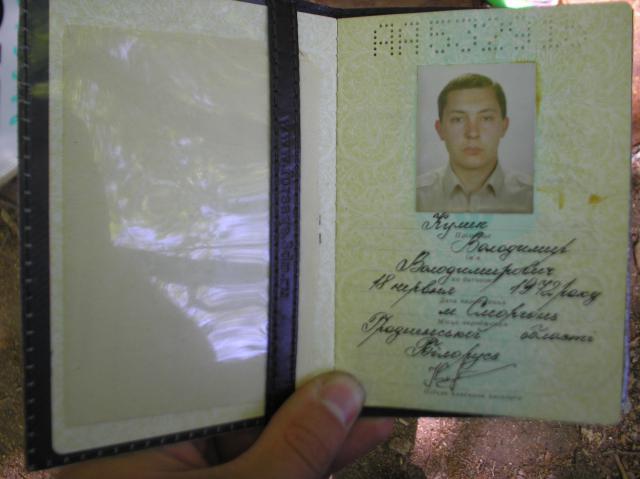 Прізвище
Володимир
Ім'я
Володимирович
По батькові
18 червня 1972 року
Дата народження
м. Сморгонь
Місце народження
Гродненської області
Білорусь
Підпис власника паспорта